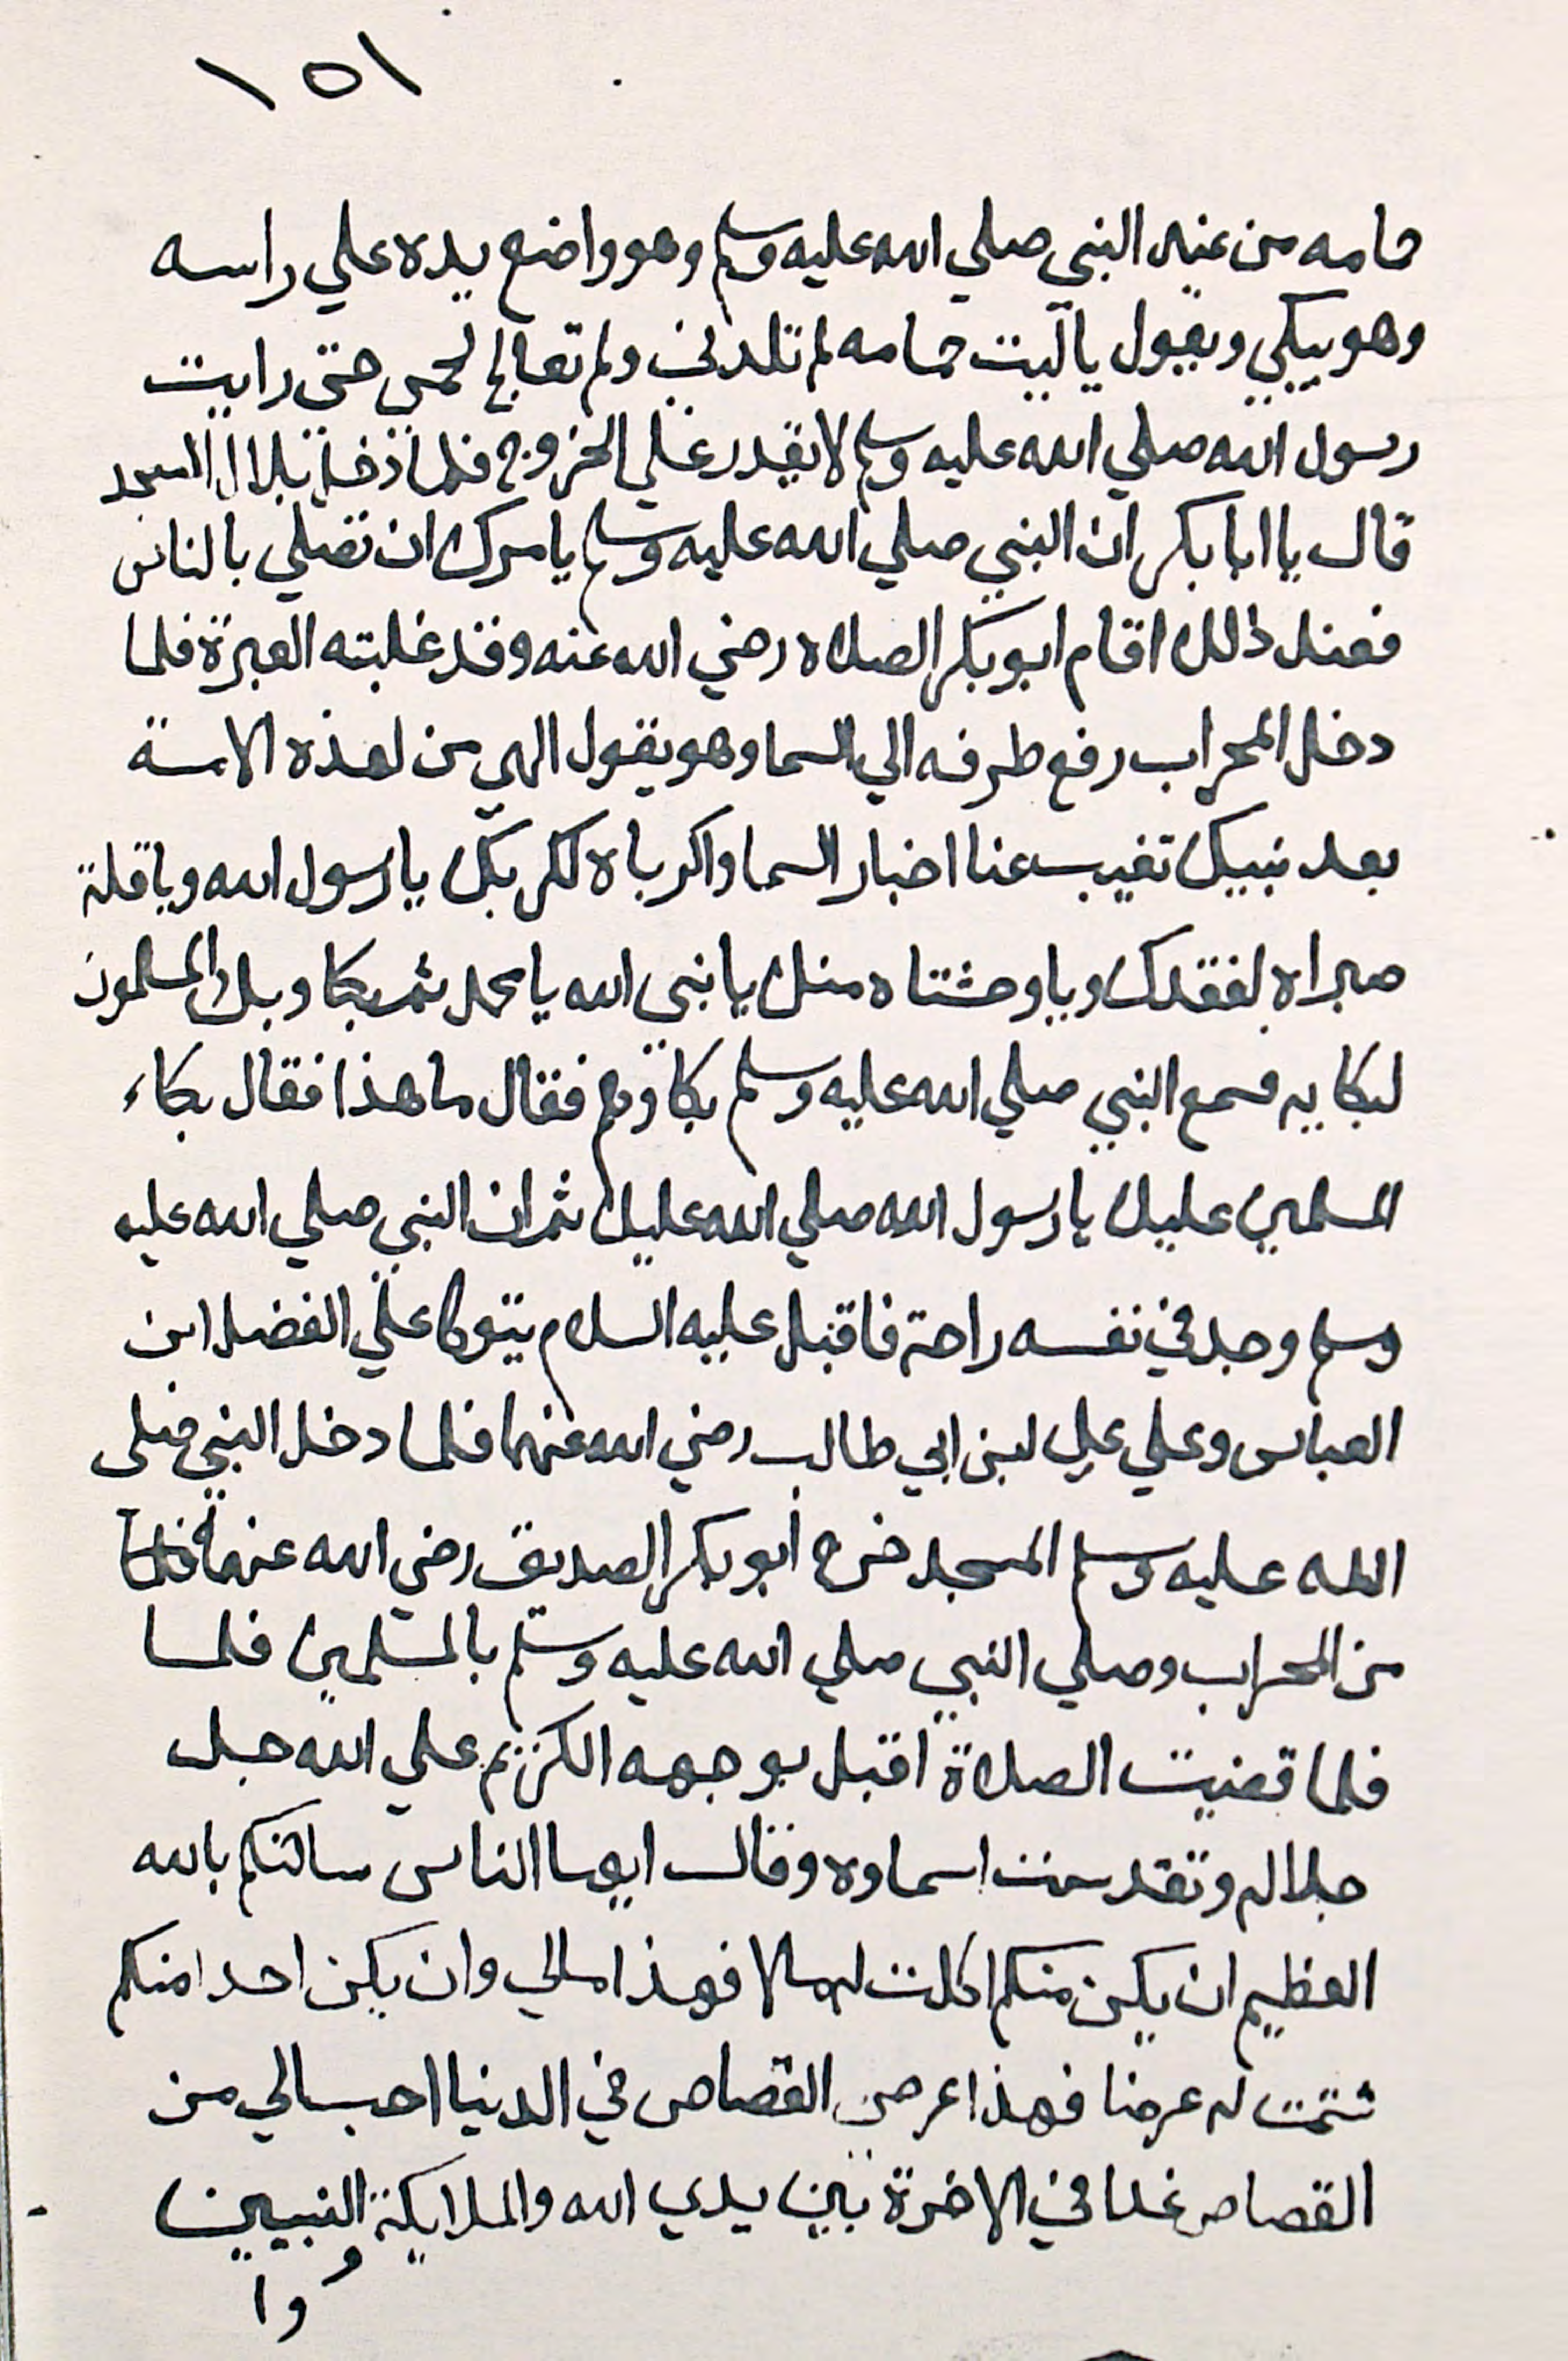 ١٥١
حمامه من عند النبي صلي الله عليه وسلم وهو واضع يده علي راسه
وهو يبكي ويقول يا ليت حمامه لم تلدني ولم تعالج لحمي حتي رايت
رسول الله صلي الله عليه وسلم لا يقدر علي الخروج فلما دخل بلال المسجد
قال يا ابا بكر ان النبي صلي الله عليه وسلم يامرك ان تصلي بالناس
فعند ذالك اقام ابو بكر الصلاه رضي الله عنه وقد غلبته العبرة فلما
دخل المحراب رفع طرفه الي السما وهو يقول الهي من لهذه الامة
بعد نبيك تغيب عنا اخبار السما واكرباه لكربك يا رسول الله ويا قلة
صبراه لفقدك ويا وحشتاه منك يا نبي الله يا محمد ثم بكا وبك المسلمون
لبكايه فسمع النبي صلي الله عليه وسلم بكاوهم فقال ما هذا فقال بكاء
المسلمين عليك يا رسول الله صلي الله عليك ثم ان النبي صلي الله عليه
وسلم وجد في نفسه راحة فاقبل عليه السلام يتوكا علي الفضل ابن
العباس وعلي علي ابن ابي طالب رضي الله عنهما فلما دخل النبي صلى
الله عليه وسلم المسجد خرج ابو بكر الصديق رضي الله عنهما
من المحراب وصلي النبي صلي الله عليه وسلم بالمسلمين فلما
فلما قضيت الصلاة اقبل بوجهه الكريم علي الله جل
جلاله وتقدست اسماوه وقال ايها الناس سالتكم بالله
العظيم ان يكن منكم اكلت له مالا فهذا مالي وان يكن احدا منكم
شتمت له عرضا فهذا عرضي القصاص في الدنيا احب الي من
القصاص غدا في الاخرة بين يدي الله والملايكة والنبيين
وا